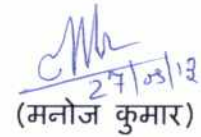 27/03/13
(मनोज कुमार)